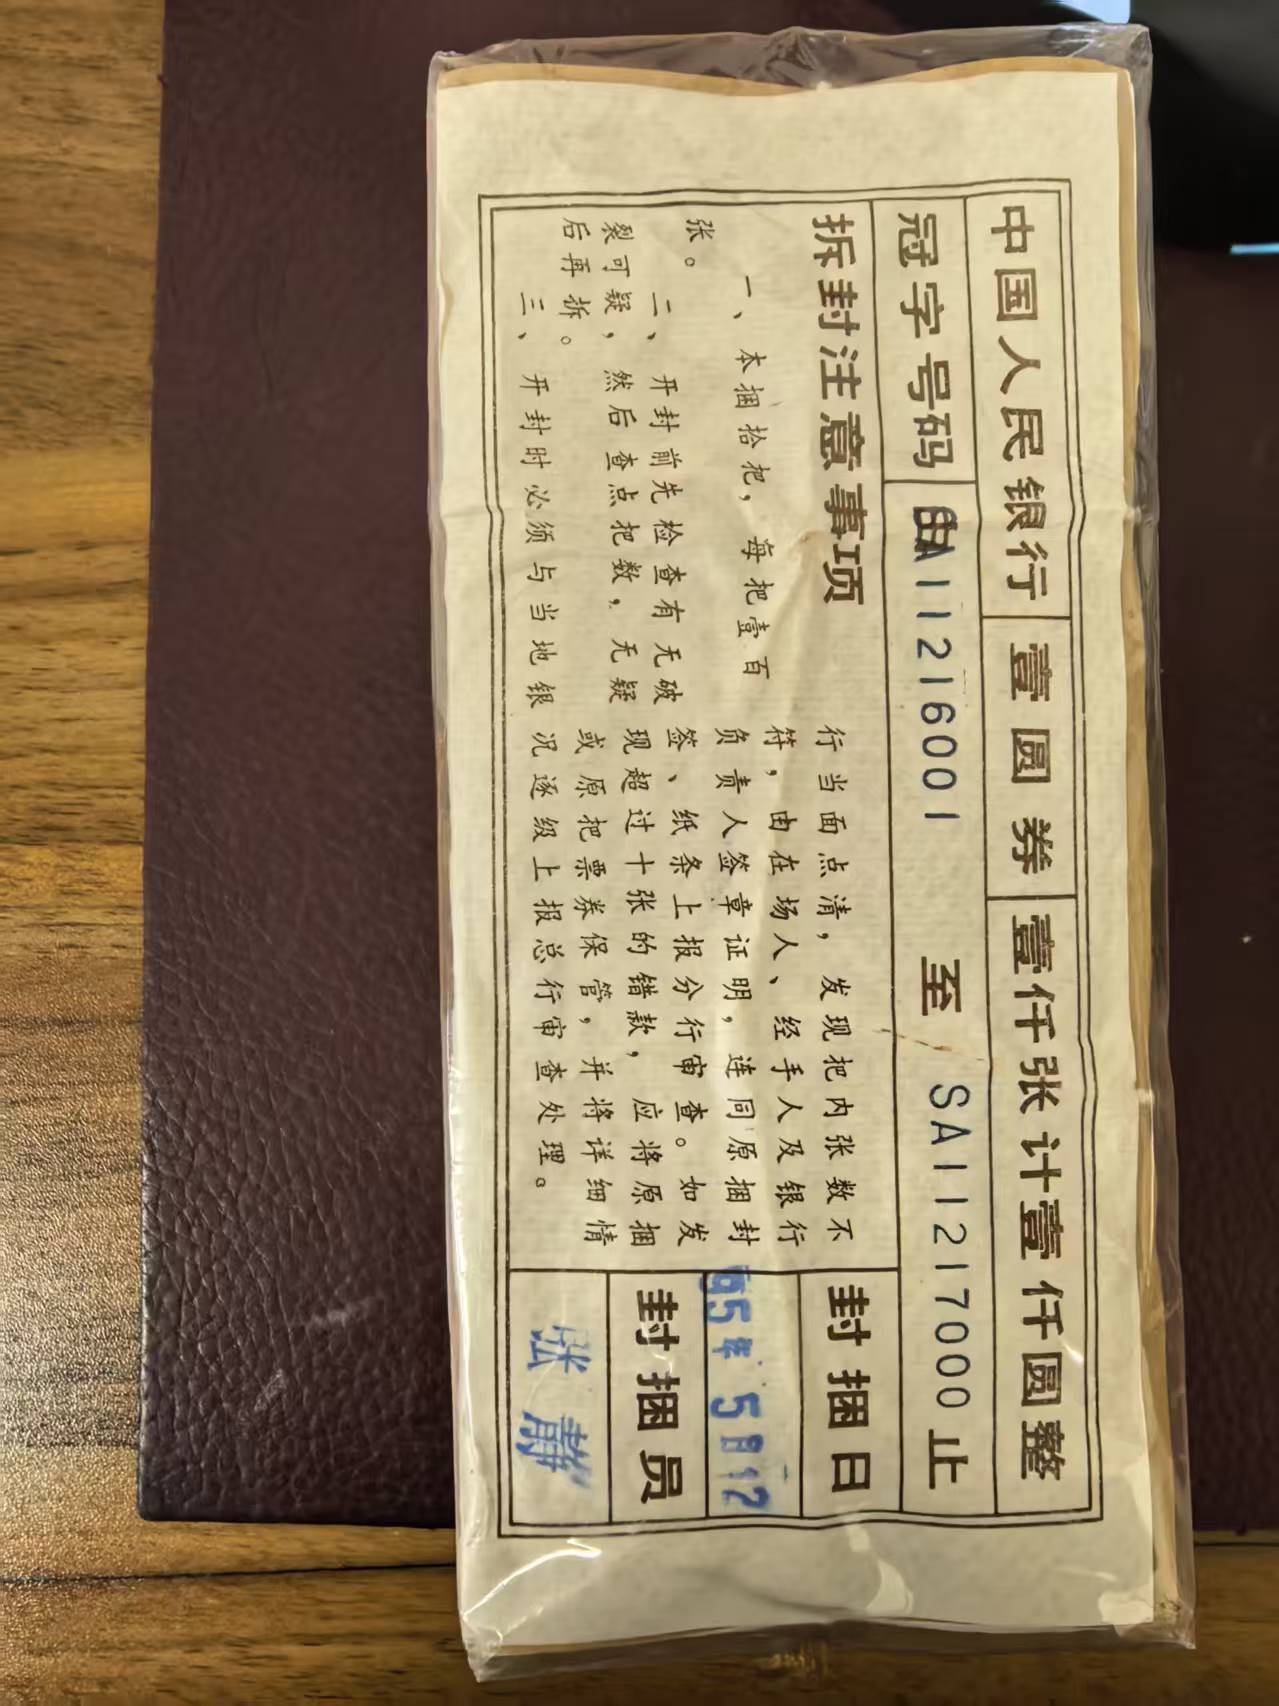 中国人民银行 壹圆券 壹仟张计壹仟圆整
冠字号码 由 A11216001 至 SA11217000止
拆封注意事项
一、本捆拾把，每把壹百
张。
二、开封前先检查有无破
裂可疑，然后查点把数，无疑
后再拆。
三、开封时必须与当地银
行当面点清，发现把内张数不
符，由在场人、经手人及银行
负责人签章证明，连同原捆封
签、纸条上报分行审查。如发
现超过十张的错款，应将原捆
或原把票券保管，并将详细情
况逐级上报总行审查处理。
封捆日
95年 5月12
封捆员
张静